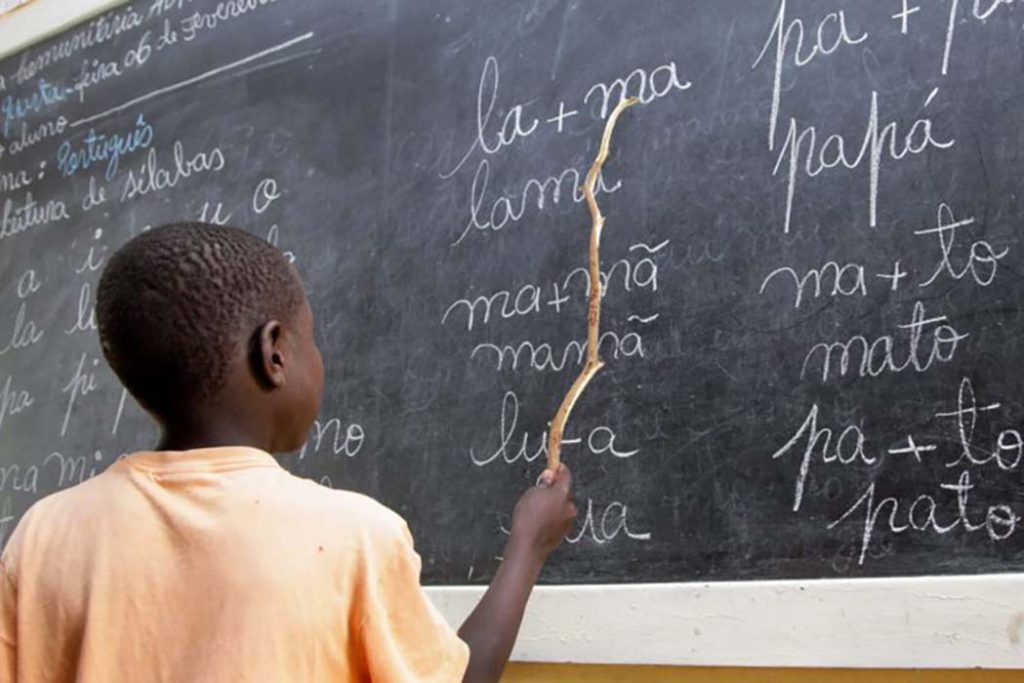 Comunitária
Quarta-feira 06 de Fevereiro
aluno
Português
Leitura de sílabas
a i u o
la
pa pi
ma mi mo
la + ma
lama
ma + mã
mamã
lu - a
pa +
papá
ma + to
mato
pa + to
pato